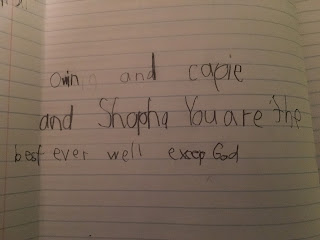 Owin and capie
and Shopha You are the
best ever well excep God